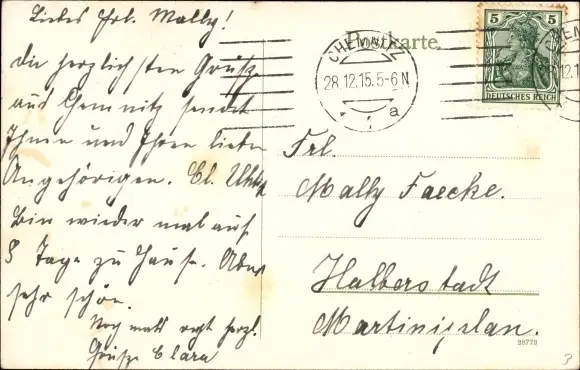 Liebes Frl. Mally!
Die herzlichsten Grüße
aus Chemnitz sendet
Ihnen und Ihren lieben
Angehörigen. Cl.
Bin wieder mal auf
8 Tage zu Hause. Aber
sehr schön.
Noch mals recht herzl.
Grüße Clara
Postkarte.
CHEMNITZ
28.12.15.5-6N
a
5 5
DEUTSCHES REICH
Frl.
Mally Faecke.
Halberstadt
Martiniplan.
28773
3